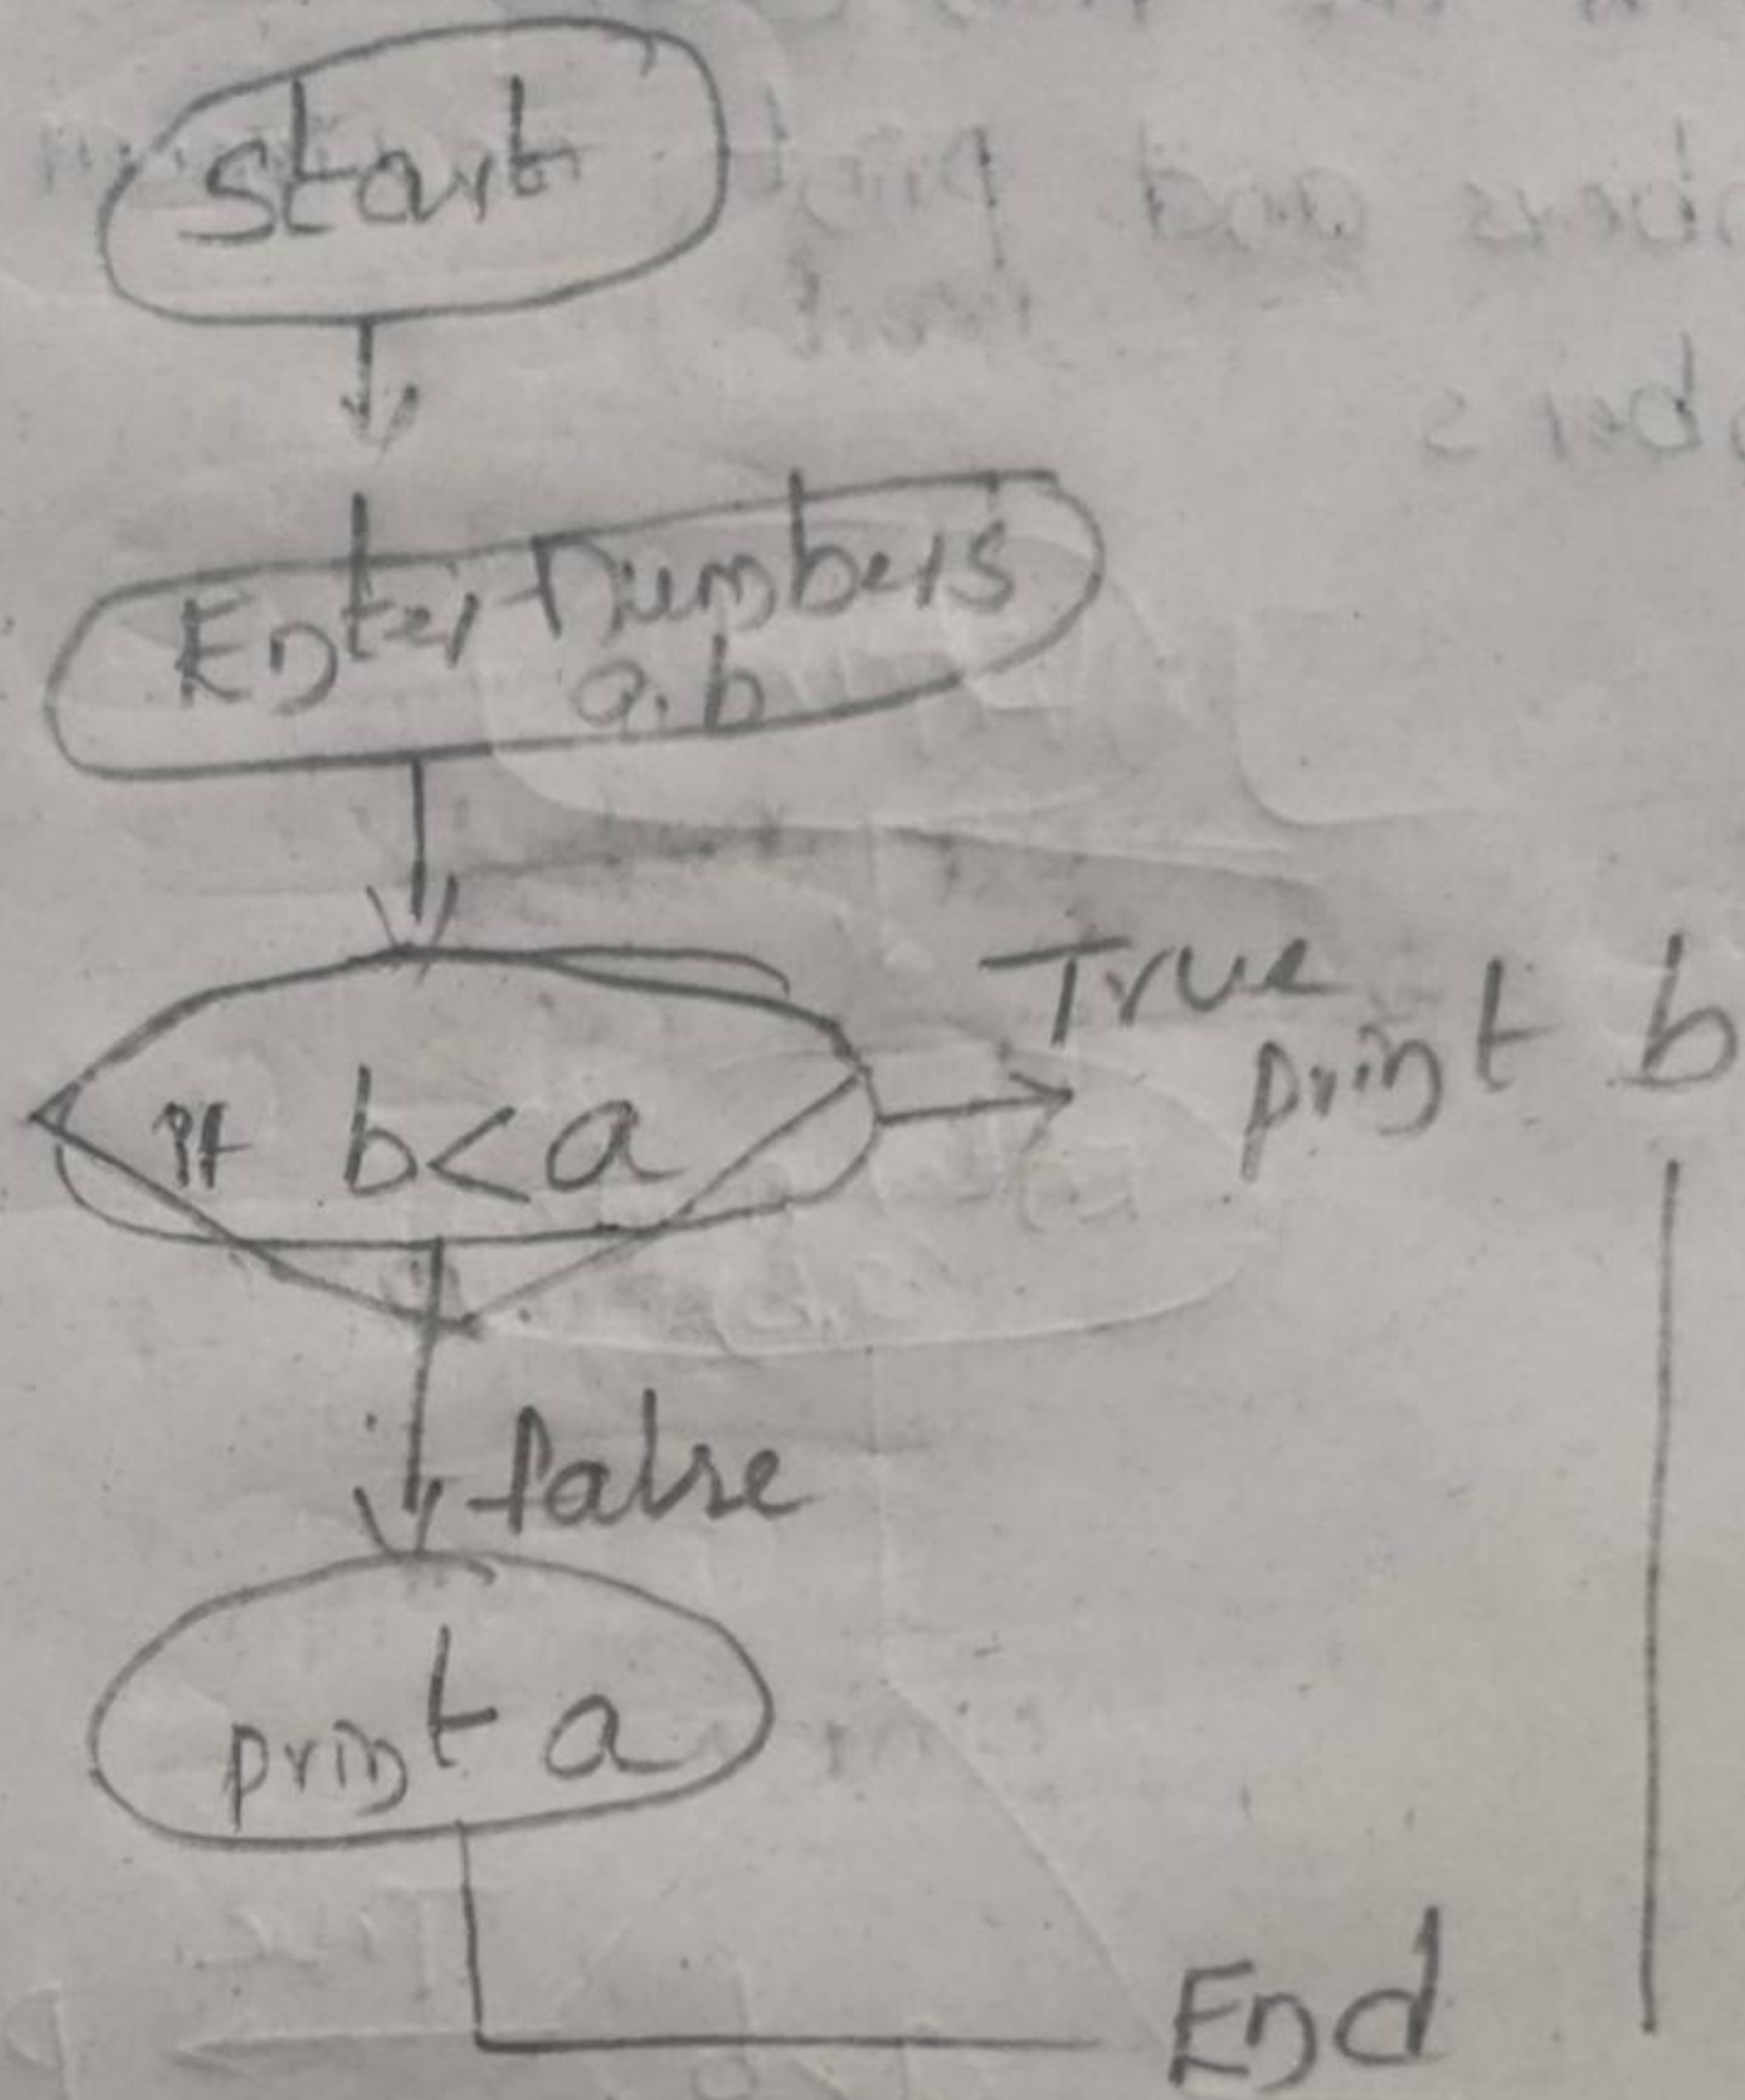 Start
Enter numbers
a, b
if b < a
True
print b
false
print a
End